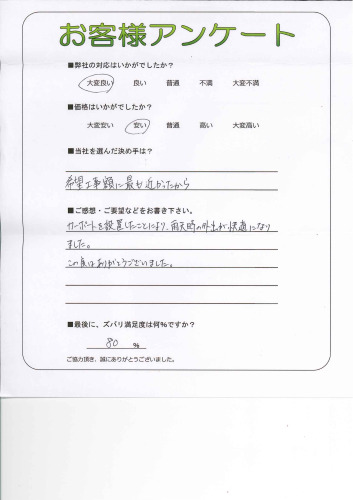 お客様アンケート
■弊社の対応はいかがでしたか?
大変良い 良い 普通 不満 大変不満
■価格はいかがでしたか?
大変安い 安い 普通 高い 大変高い
■当社を選んだ決め手は?
希望工事額に最も近かったから
■ご感想・ご要望などをお書き下さい。
カーポートを設置したことにより、雨天時の外出が快適になり
ました。
この度はありがとうございました。
■最後に、ズバリ満足度は何%ですか?
80 %
ご協力頂き、誠にありがとうございました。